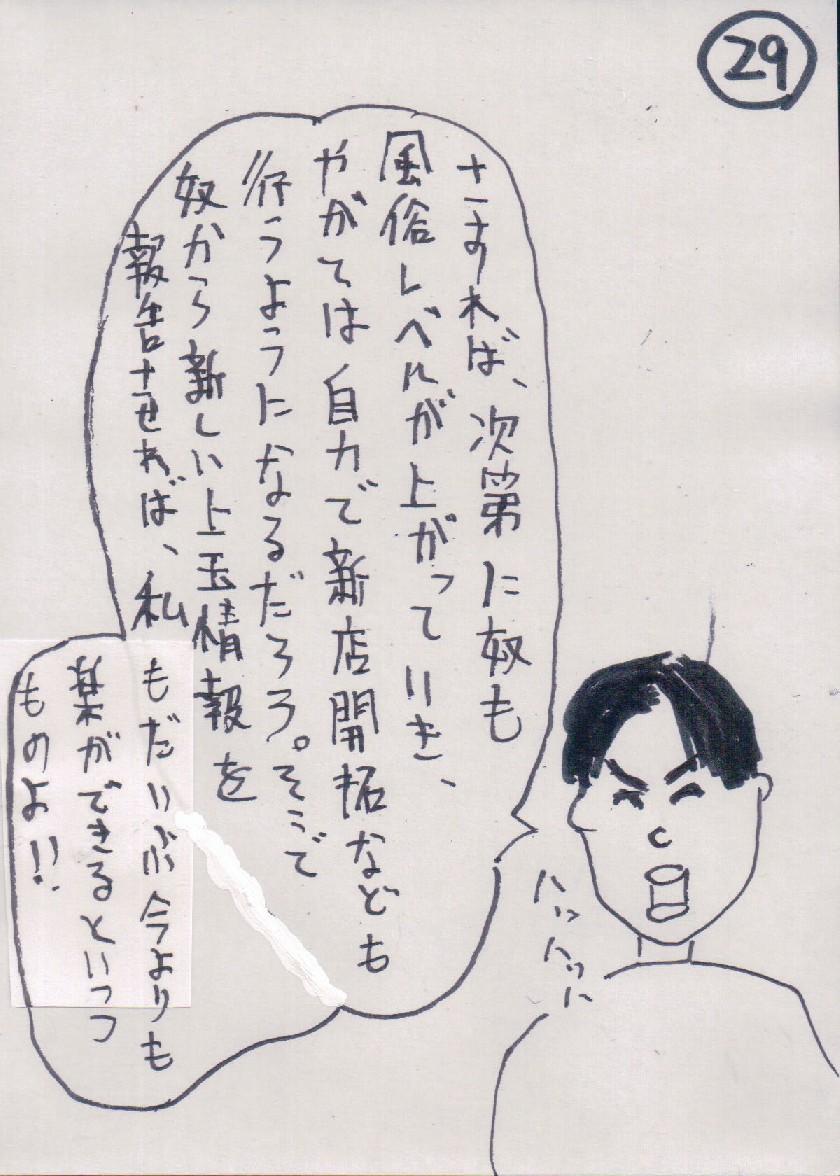 29
さすれば、次第に奴も
風俗レベルが上がっていき、
やがては自力で新店開拓なども
行うようになるだろう。そこで
奴から新しい上玉情報を
報告させれば、私
もだいぶ今よりも
楽ができるといつ
ものよ!!
ハッハッハ